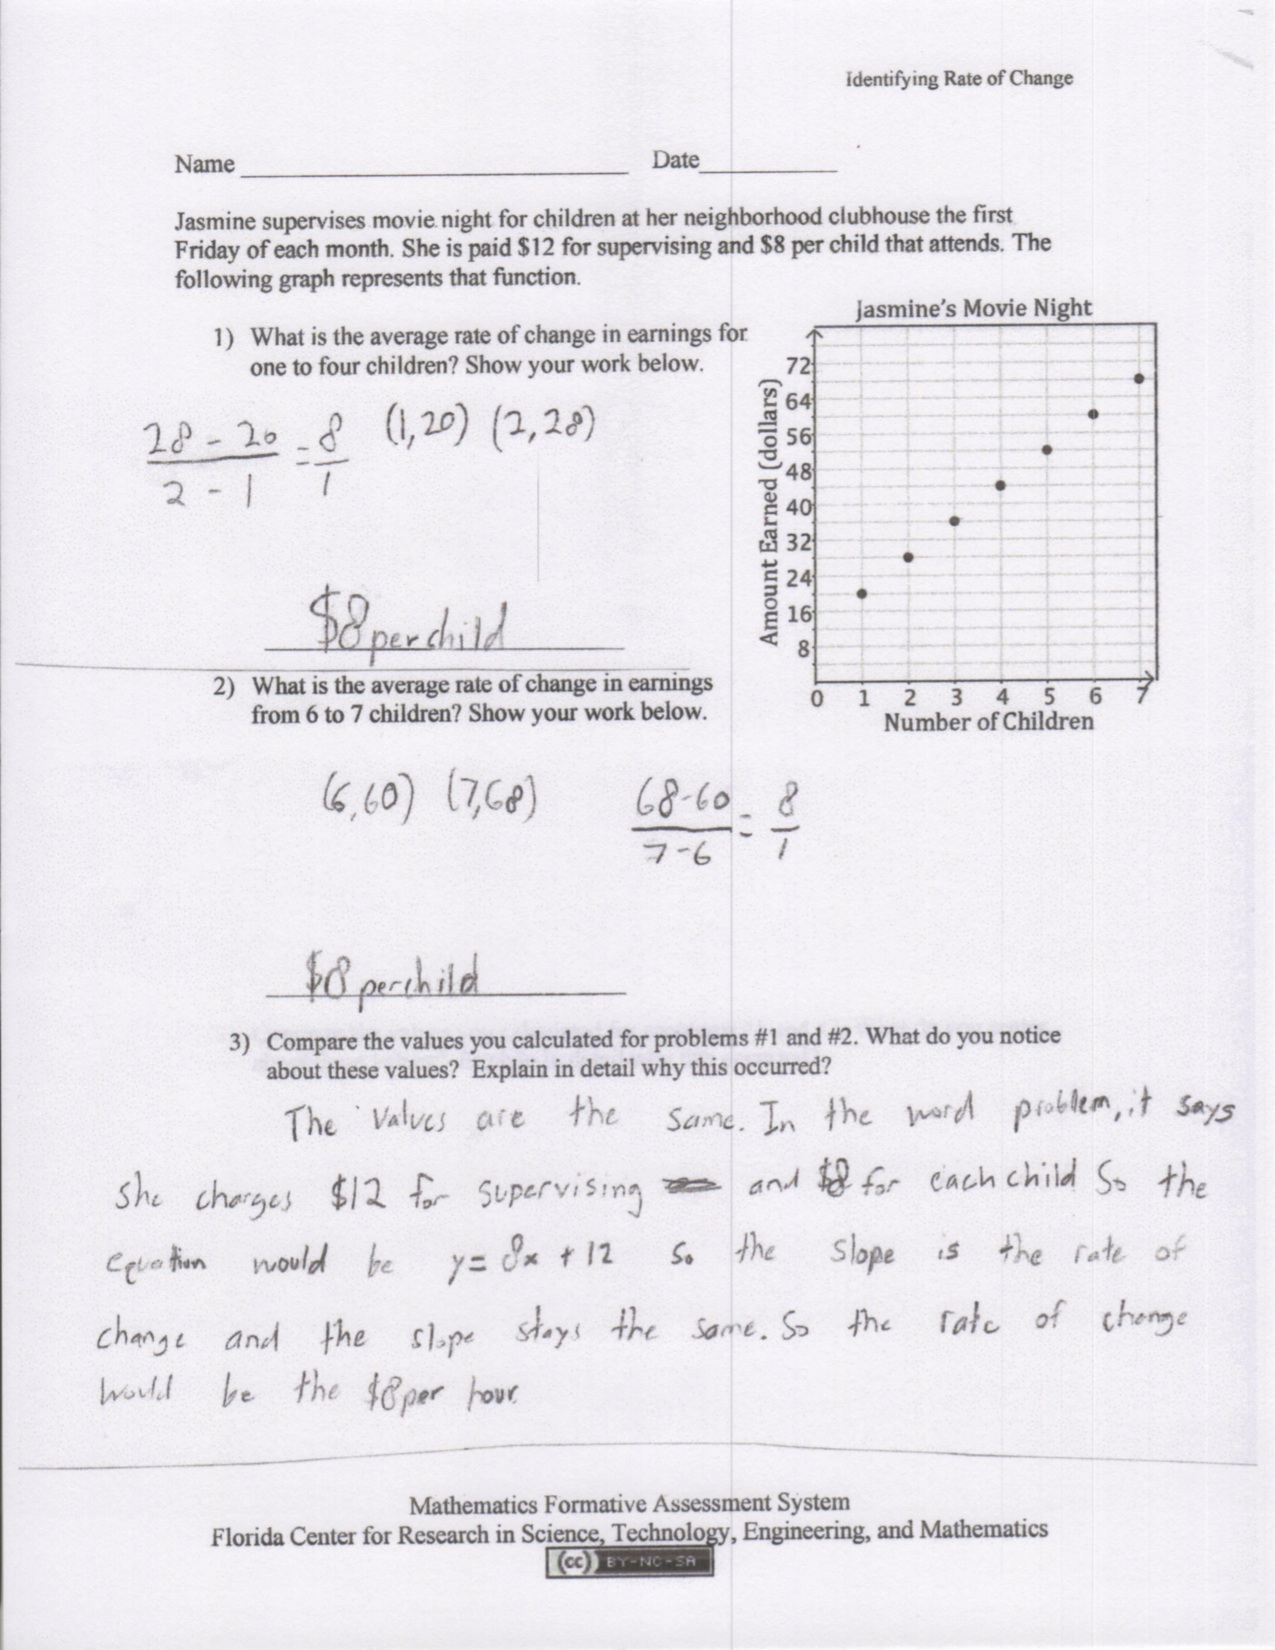 Identifying Rate of Change
Name
Date
Jasmine supervises movie night for children at her neighborhood clubhouse the first
Friday of each month. She is paid $12 for supervising and $8 per child that attends. The
following graph represents that function.
1) What is the average rate of change in earnings for
one to four children? Show your work below.
28 - 20 = 8 (1,20) (2,28)
2 - 1 1
$8 per child
Jasmine's Movie Night
Amount Earned (dollars)
72
64
56
48
40
32
24
16
8
0 1 2 3 4 5 6 7
Number of Children
2) What is the average rate of change in earnings
from 6 to 7 children? Show your work below.
(6,60) (7,68) 68-60 = 8
7-6 1
$8 per child
3) Compare the values you calculated for problems #1 and #2. What do you notice
about these values? Explain in detail why this occurred?
The values are the same. In the word problem, it says
she charges $12 for supervising and $8 for each child So the
equation would be y = 8x + 12 so the slope is the rate of
change and the slope stays the same. So the rate of change
would be the $8 per hour.
Mathematics Formative Assessment System
Florida Center for Research in Science, Technology, Engineering, and Mathematics
(cc) BY-NC-SA